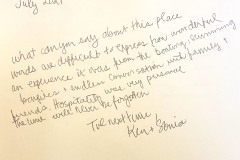 July 2001
What can you say about this place
words are difficult to express how wonderful
an experience it was from the boating, swimming
bonfires & endless conversation with family &
friends. Hospitality was very personal
the time will never be forgotten
Til next time
Ken & Sonia